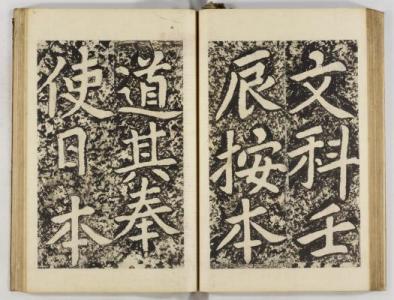 文科壬
辰按本
道其奉
使日本